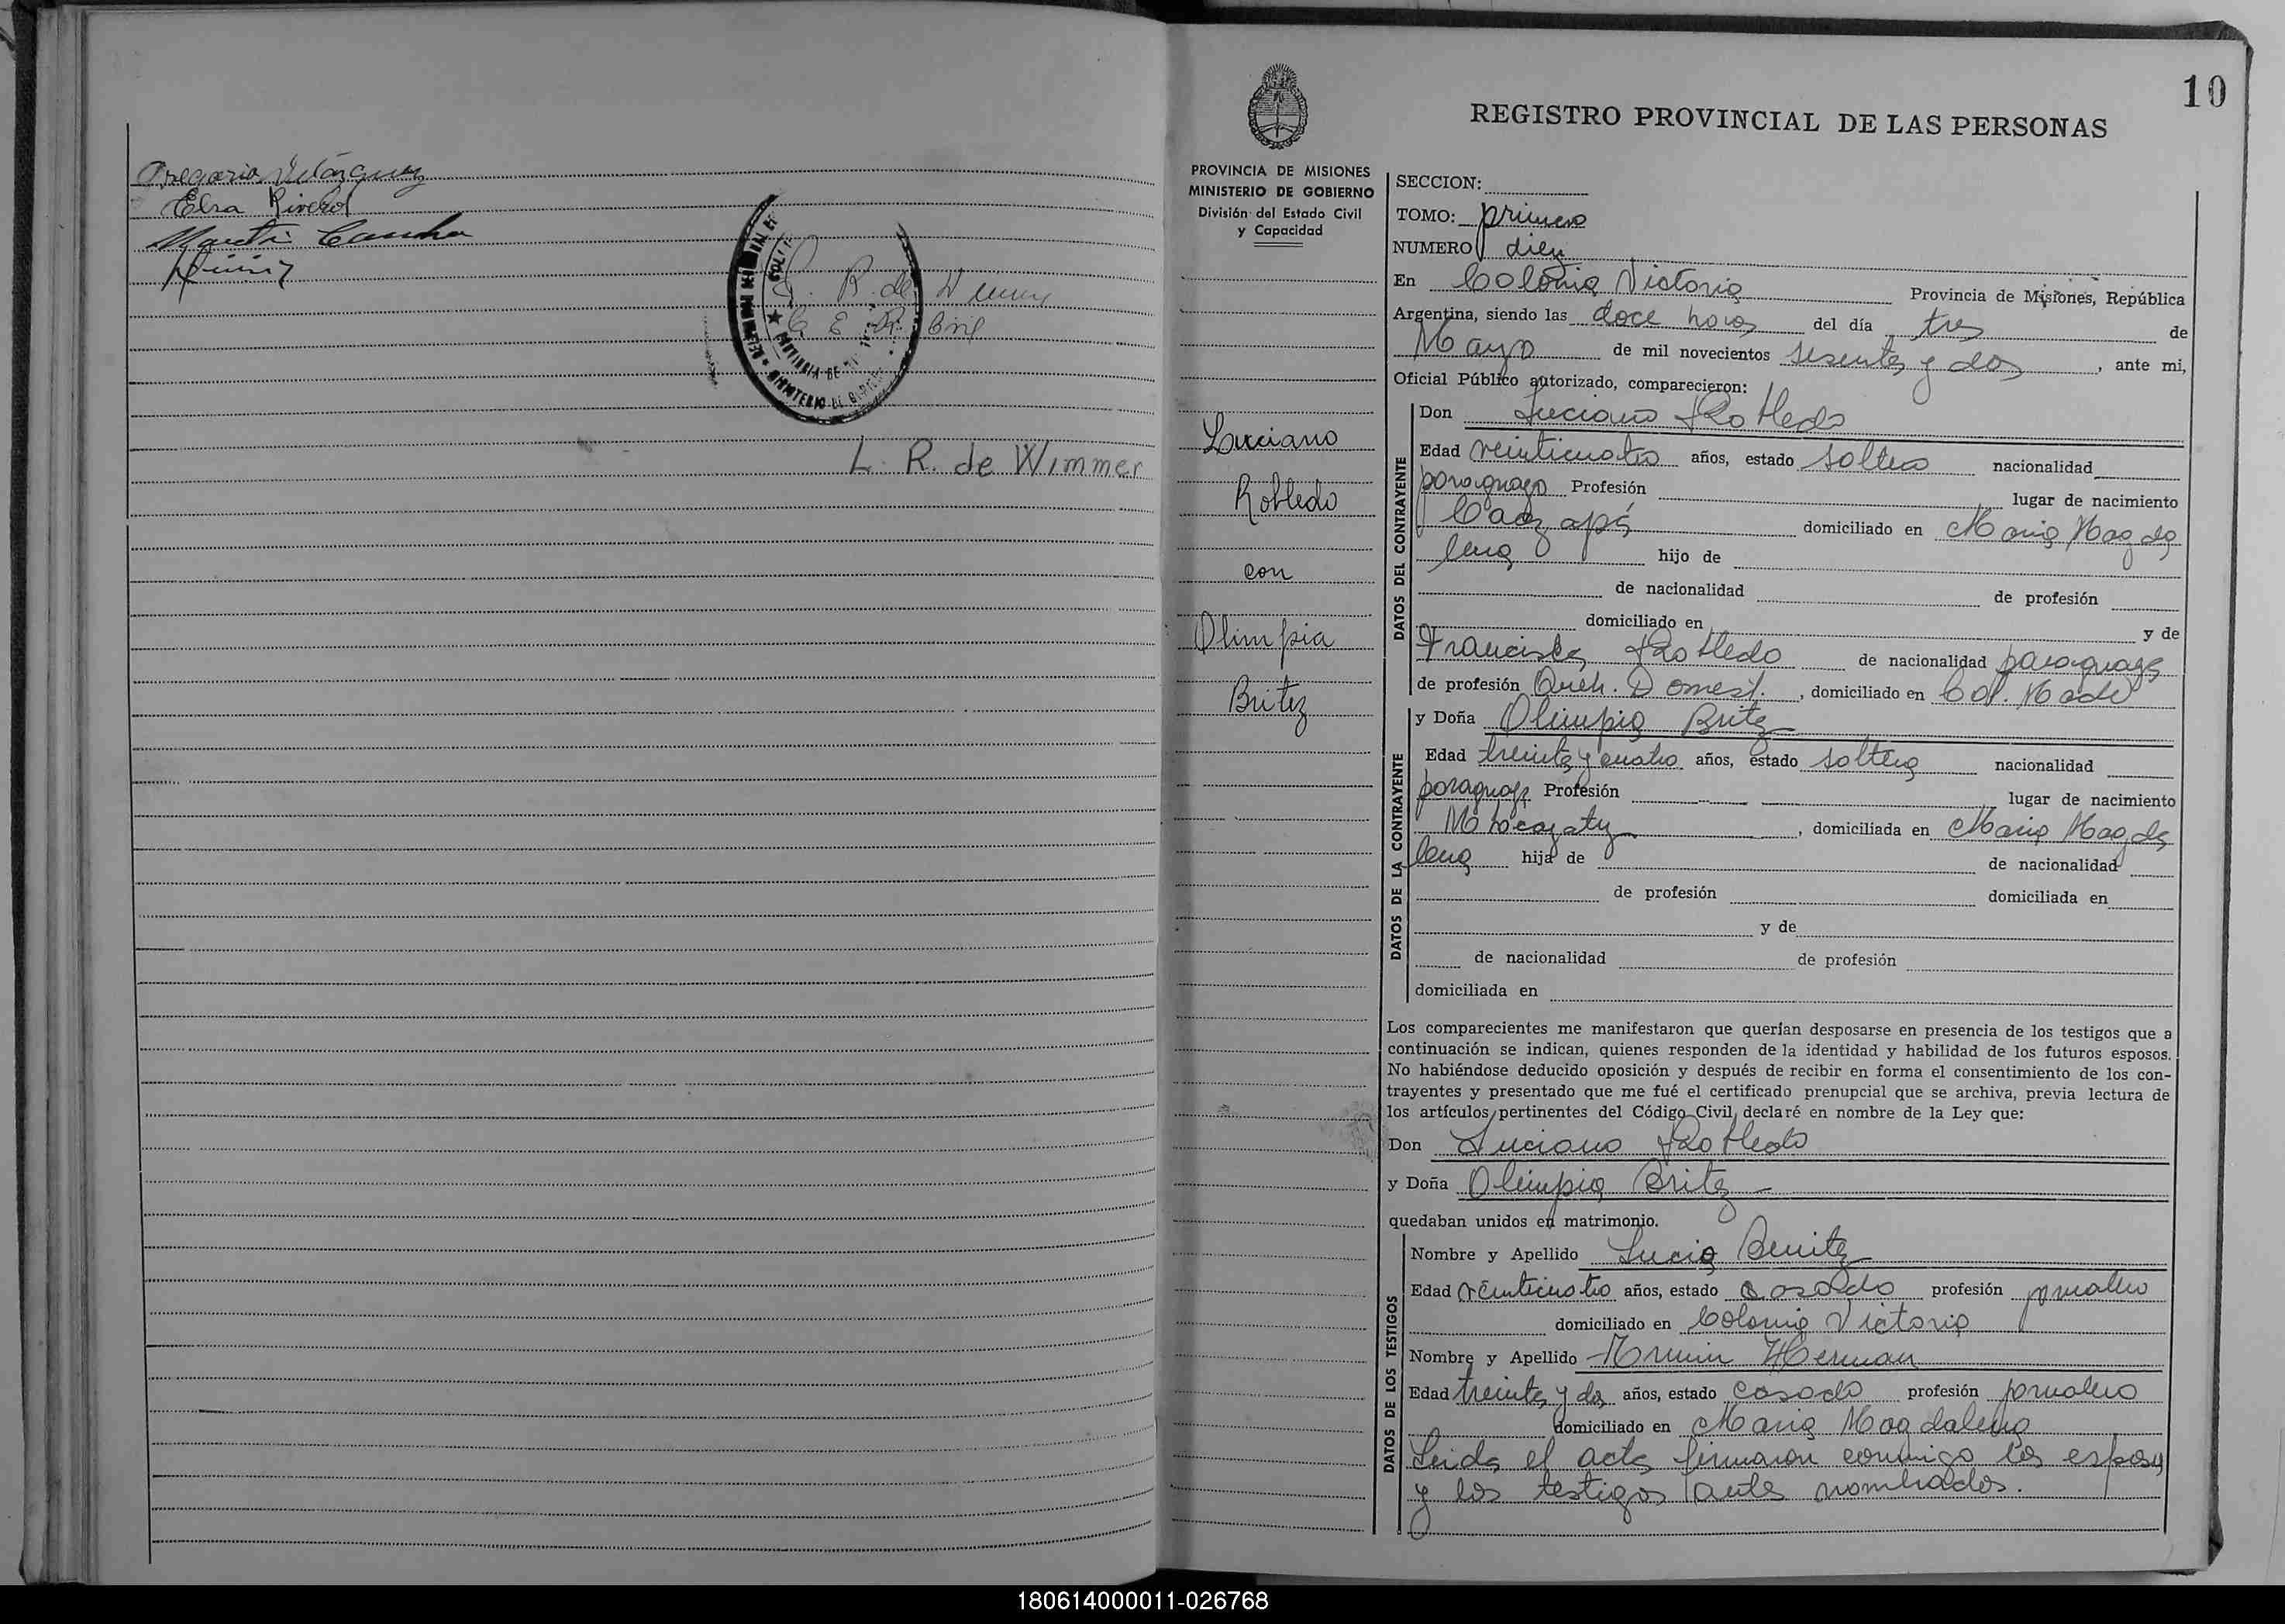 Gregorio Velázquez
Elsa Riverol
L. R. de Wimmer
10
REGISTRO PROVINCIAL DE LAS PERSONAS
PROVINCIA DE MISIONES
MINISTERIO DE GOBIERNO
División del Estado Civil
y Capacidad
Luciano
Robledo
con
Olimpia
Britez
SECCION:
TOMO: primero
NUMERO diez
En Colonia Victoria Provincia de Misiones, República
Argentina, siendo las doce horas del día tres de
Mayo de mil novecientos sesenta y dos, ante mi,
Oficial Público autorizado, comparecieron:
DATOS DEL CONTRAYENTE
Don Luciano Robledo
Edad veinticuatro años, estado soltero nacionalidad
paraguayo Profesión lugar de nacimiento
Caazapá domiciliado en Maria Magda
lena hijo de
de nacionalidad de profesión
domiciliado en y de
Francisca Robledo de nacionalidad paraguaya
de profesión Queh. Domest., domiciliado en Col. Mado
DATOS DE LA CONTRAYENTE
y Doña Olimpia Britez
Edad treinta y cuatro años, estado soltera nacionalidad
paraguaya Profesión lugar de nacimiento
, domiciliada en Maria Magda
lena hija de de nacionalidad
de profesión domiciliada en
y de
de nacionalidad de profesión
domiciliada en
Los comparecientes me manifestaron que querían desposarse en presencia de los testigos que a
continuación se indican, quienes responden de la identidad y habilidad de los futuros esposos.
No habiéndose deducido oposición y después de recibir en forma el consentimiento de los con-
trayentes y presentado que me fué el certificado prenupcial que se archiva, previa lectura de
los artículos pertinentes del Código Civil, declaré en nombre de la Ley que:
Don Luciano Robledo
y Doña Olimpia Britez
quedaban unidos en matrimonio.
DATOS DE LOS TESTIGOS
Nombre y Apellido Lucio Benitez
Edad veinticuatro años, estado casado profesión jornalero
domiciliado en Colonia Victoria
Nombre y Apellido Armin Herman
Edad treinta y dos años, estado casado profesión jornalero
domiciliado en Maria Magdalena
Leida el acta firmaron conmigo los esposos
y los testigos antes nombrados.
180614000011-026768